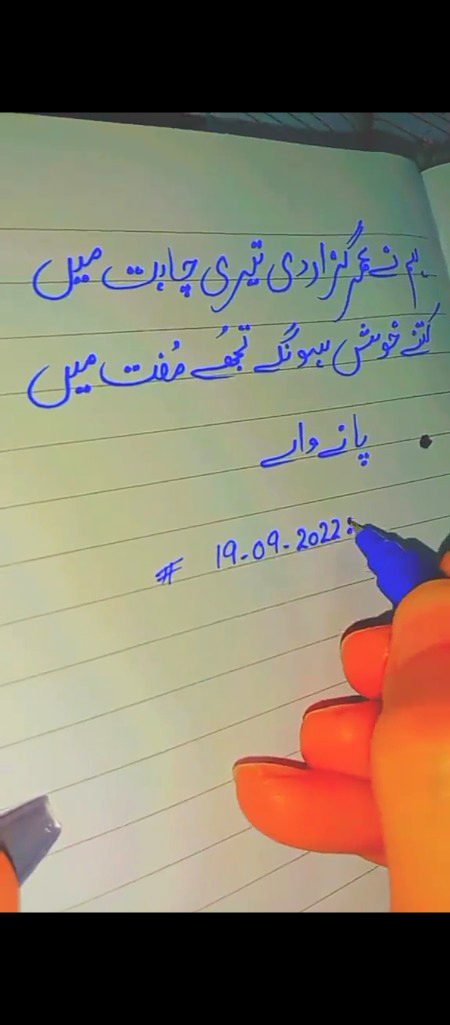 ہم نے عمر گزار دی تیری چاہت میں
کتنے خوش ہونگے تجھے مُفت میں
پانے والے
# 19-09-2022: